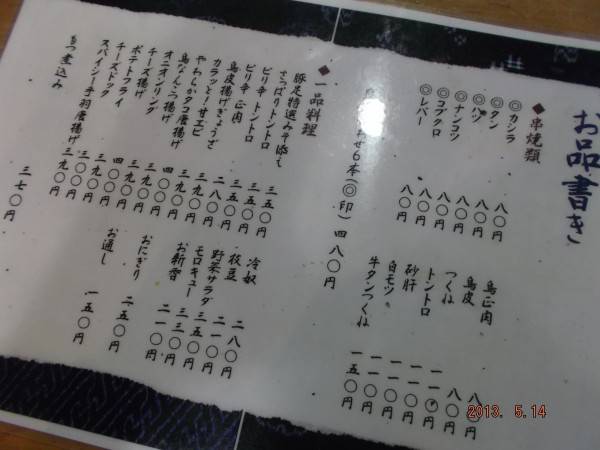 お品書き
◆串焼類
◎カシラ 八〇円
◎タン 八〇円
◎ハツ 八〇円
◎ナンコツ 八〇円
◎コブクロ 八〇円
◎レバー 八〇円
鳥正肉 八〇円
鳥皮 八〇円
つくね
トントロ
砂肝
白モツ
牛タンつくね 一五〇円
せ6本(◎印) 四八〇円
◆一品料理
豚足特選みそ添え 三五〇円
さっぱりトントロ 三五〇円
ピリ辛トントロ 三五〇円
ピリ辛正肉
鳥皮揚げぎょうざ 二八〇円
カラッと!甘エビ
やわらかタコ唐揚げ 三九〇円
鳥なんこつ揚げ
オニオンリング
チーズ揚げ
ポテトフライ
チーズドック
スパイシー手羽唐揚げ 三九〇円
もつ煮込み 三七〇円
冷奴 二八〇円
枝豆 二一〇円
野菜サラダ 三五〇円
モロキュー 三三〇円
お新香 二一〇円
おにぎり 二五〇円
お通し 一五〇円
2013. 5.14